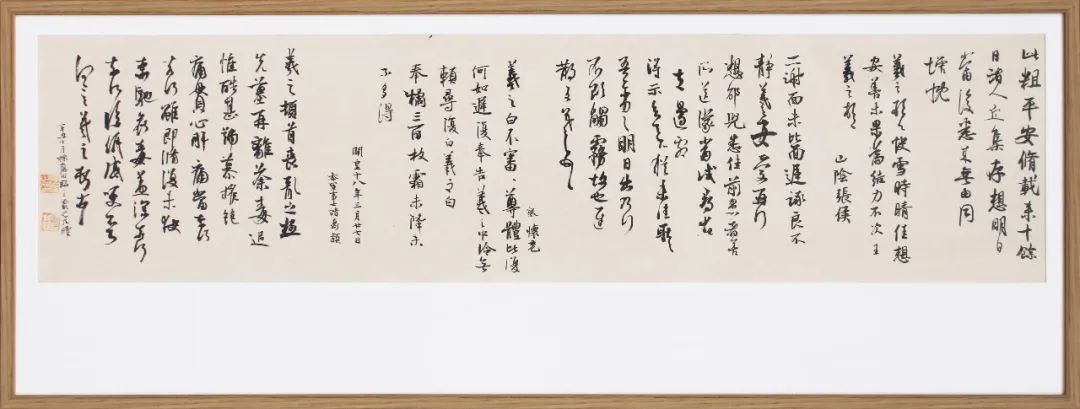 此粗平安脩載来十餘
日諸人近集存想明日
當復悉来無由同
增慨
羲之頓首快雪時晴佳想
安善未果為結力不次王
羲之頓首
山陰張侯
二謝面未比面遲詠良不
靜羲之女愛再拜
想邰兒悉佳前患者善
所送議當試尋省
左邊劇
得示知足下猶未佳耿
吾亦劣明日出乃行
不欲觸霧故也遲
散王羲之頓首
懷充
羲之白不審尊體比復
何如遲復奉告羲之中冷無
賴尋復白羲之白
奉橘三百枚霜未降未
可多得
開皇十八年三月廿七日
參軍事學士諸葛穎
羲之頓首喪亂之極
先墓再離荼毒追
惟酷甚號慕摧絕
痛貫心肝痛當奈何
奈何雖即脩復未獲
奔馳哀毒益深奈何
奈何臨紙感哽不知
何言羲之頓首頓首